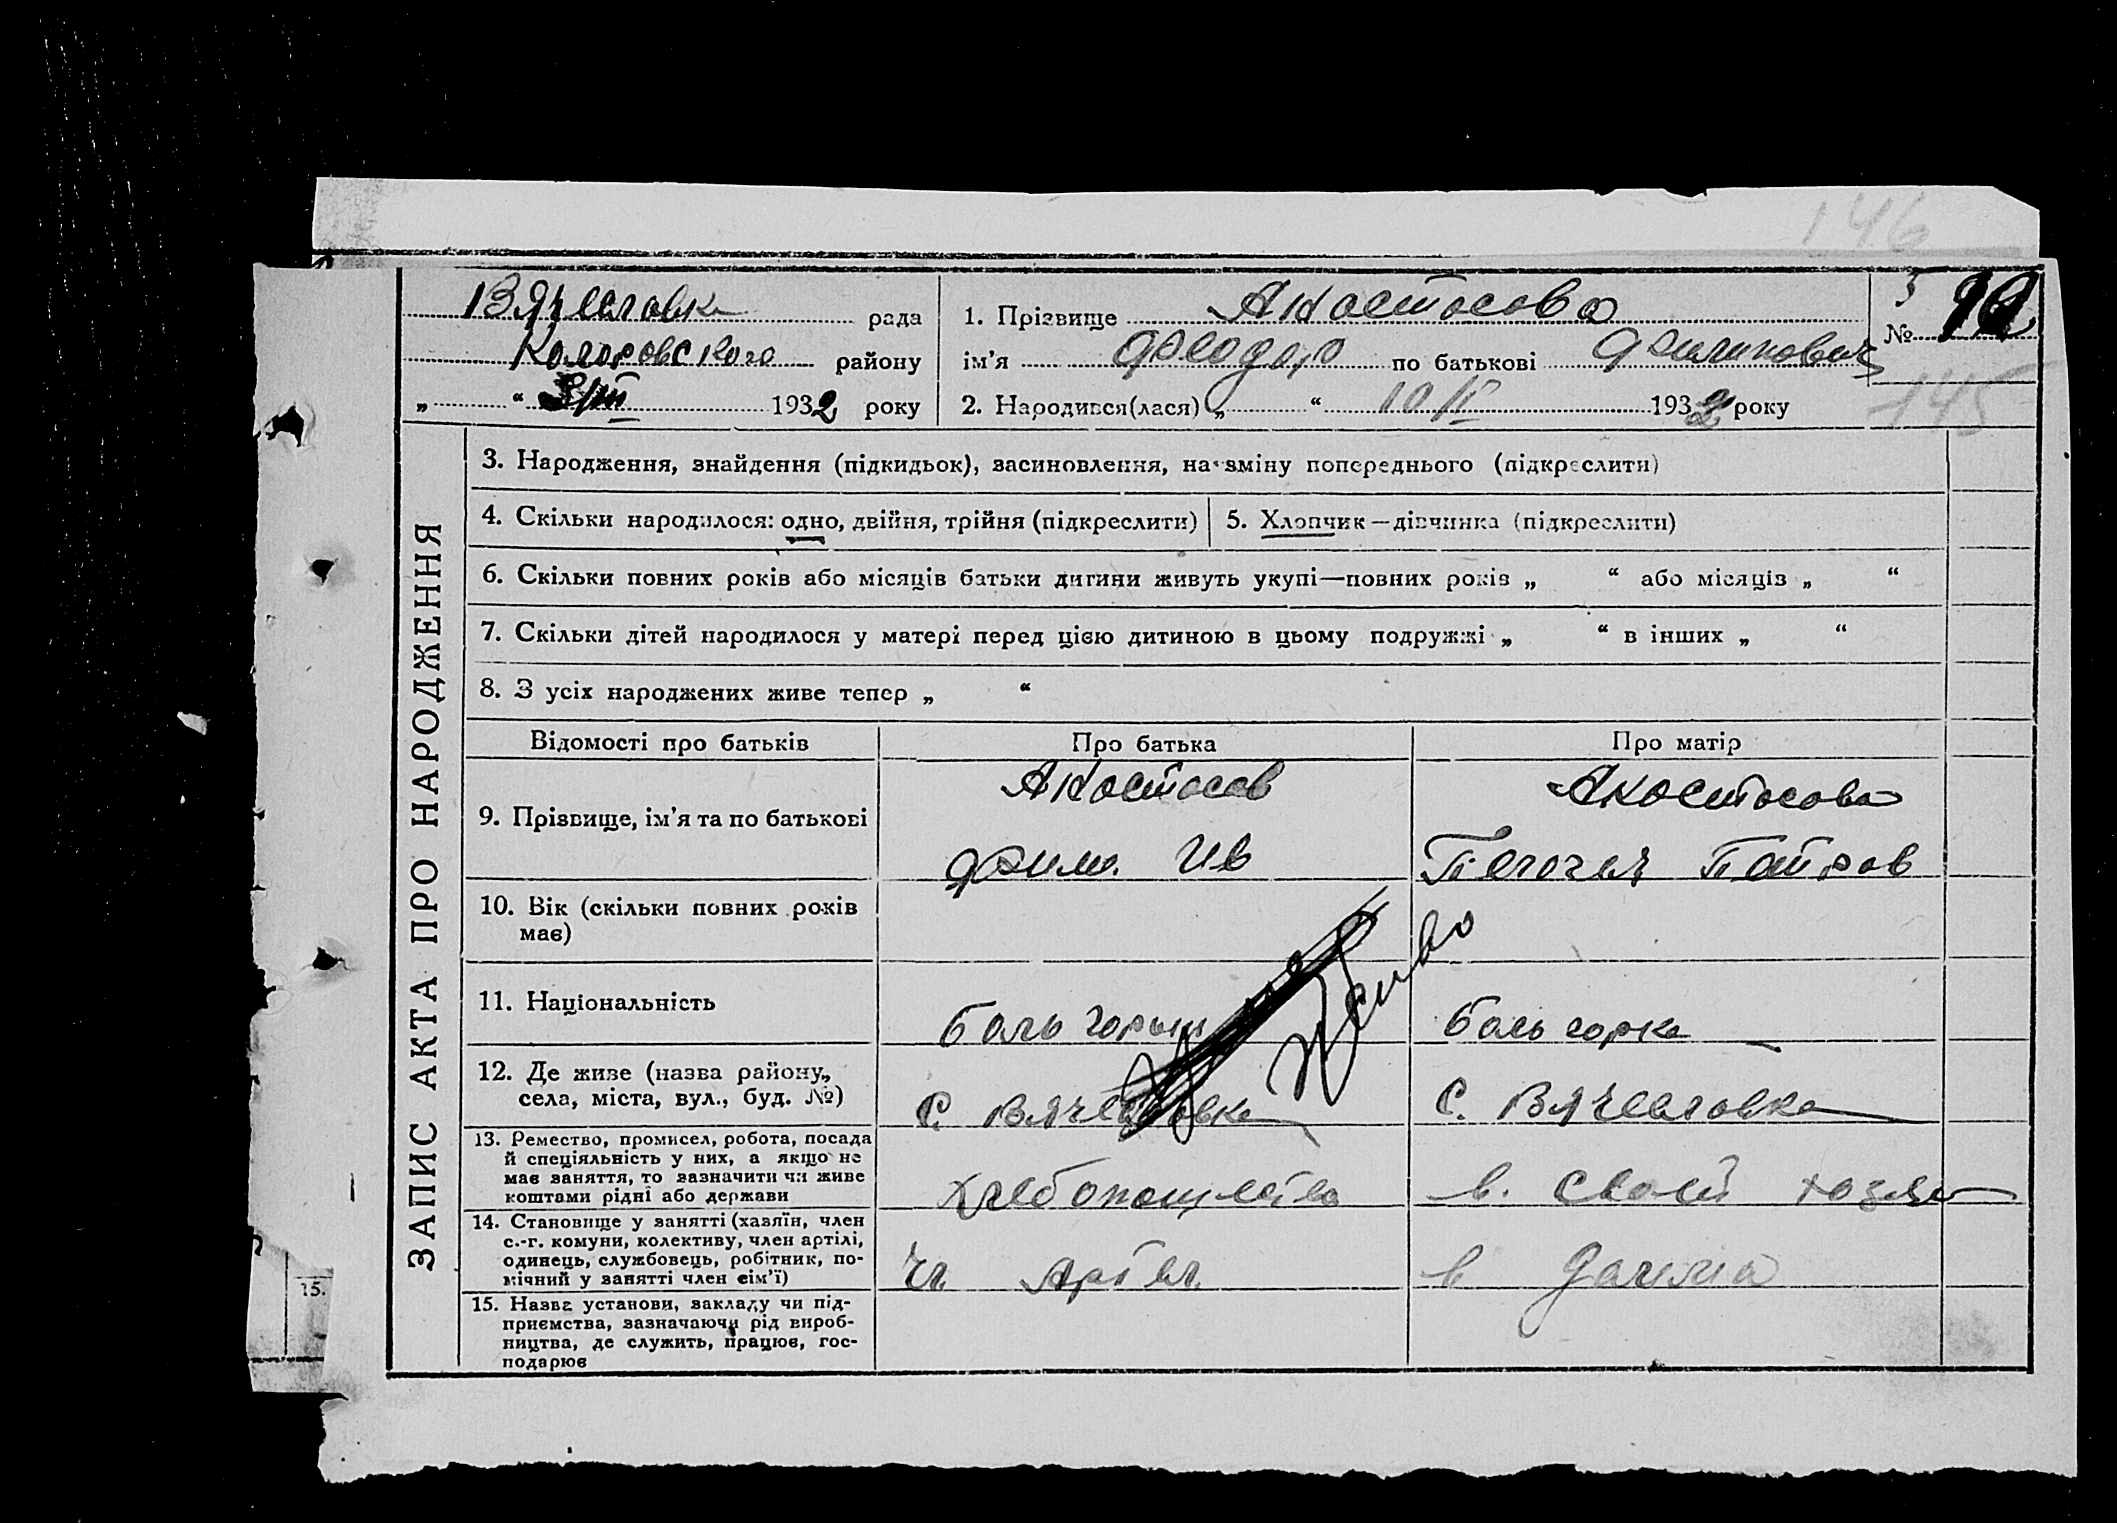 146
Вячеславка рада
Коларовского району
„ “ 3/III 1932 року
1. Прізвище Анастасова
ім’я Феодор по батькові Филипович
2. Народився(лася) „ “ 10/II 1932 року
№ 10
145
ЗАПИС АКТА ПРО НАРОДЖЕННЯ
3. Народження, знайдення (підкидьок), засиновлення, на зміну попереднього (підкреслити)
4. Скільки народилося: одно, двійня, трійня (підкреслити)
5. Хлопчик—дівчинка (підкреслити)
6. Скільки повних років або місяців батьки дитини живуть укупі—повних років „ “ або місяців „ “
7. Скільки дітей народилося у матері перед цією дитиною в цьому подружжі „ “ в інших „ “
8. З усіх народжених живе тепер „ “
Відомості про батьків Про батька Про матір
9. Прізвище, ім’я та по батькові
Анастасов
Фил. Ив
Анастасова
Пелагея Петров
10. Вік (скільки повних років
має)
11. Національність
Бальгорин
Бальгорка
12. Де живе (назва району,
села, міста, вул., буд. №)
С. Вячеславка
С. Вячеславка
13. Ремество, промисел, робота, посада
й спеціяльність у них, а якщо не
має заняття, то зазначити чи живе
коштами рідні або держави
Хлебопашество
в. своей хозяй
14. Становище у занятті (хазяїн, член
с.-г. комуни, колективу, член артілі,
одинець, службовець, робітник, по-
мічний у занятті член сім’ї)
Чл. Артел.
15. Назва установи, закладу чи під-
приємства, зазначаючи рід вироб-
ництва, де служить, працює, гос-
подарює
15.